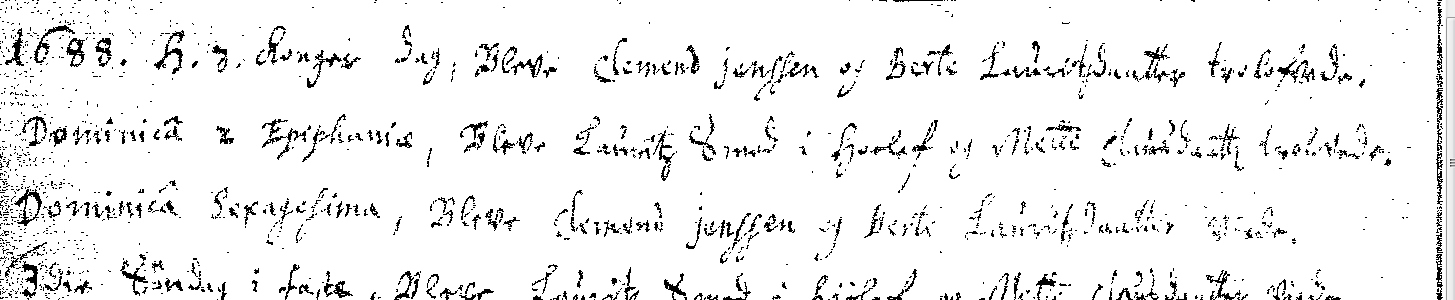 1688. H. 3. Konger Dag, Bleve Clemend jenssen og Berte Lauritzdaatter trolofvede.
Dominica 2 Epiphaniæ, Bleve Lauritz Smed i og Mette Clausdaatt trolovede.
Dominica Sexagesima, Bleve Clemend jenssen og Berte Lauritzdaatter viede.
3die Søndag i faste, Bleve Lauritz Smed i og Mette Clausdaatter viede